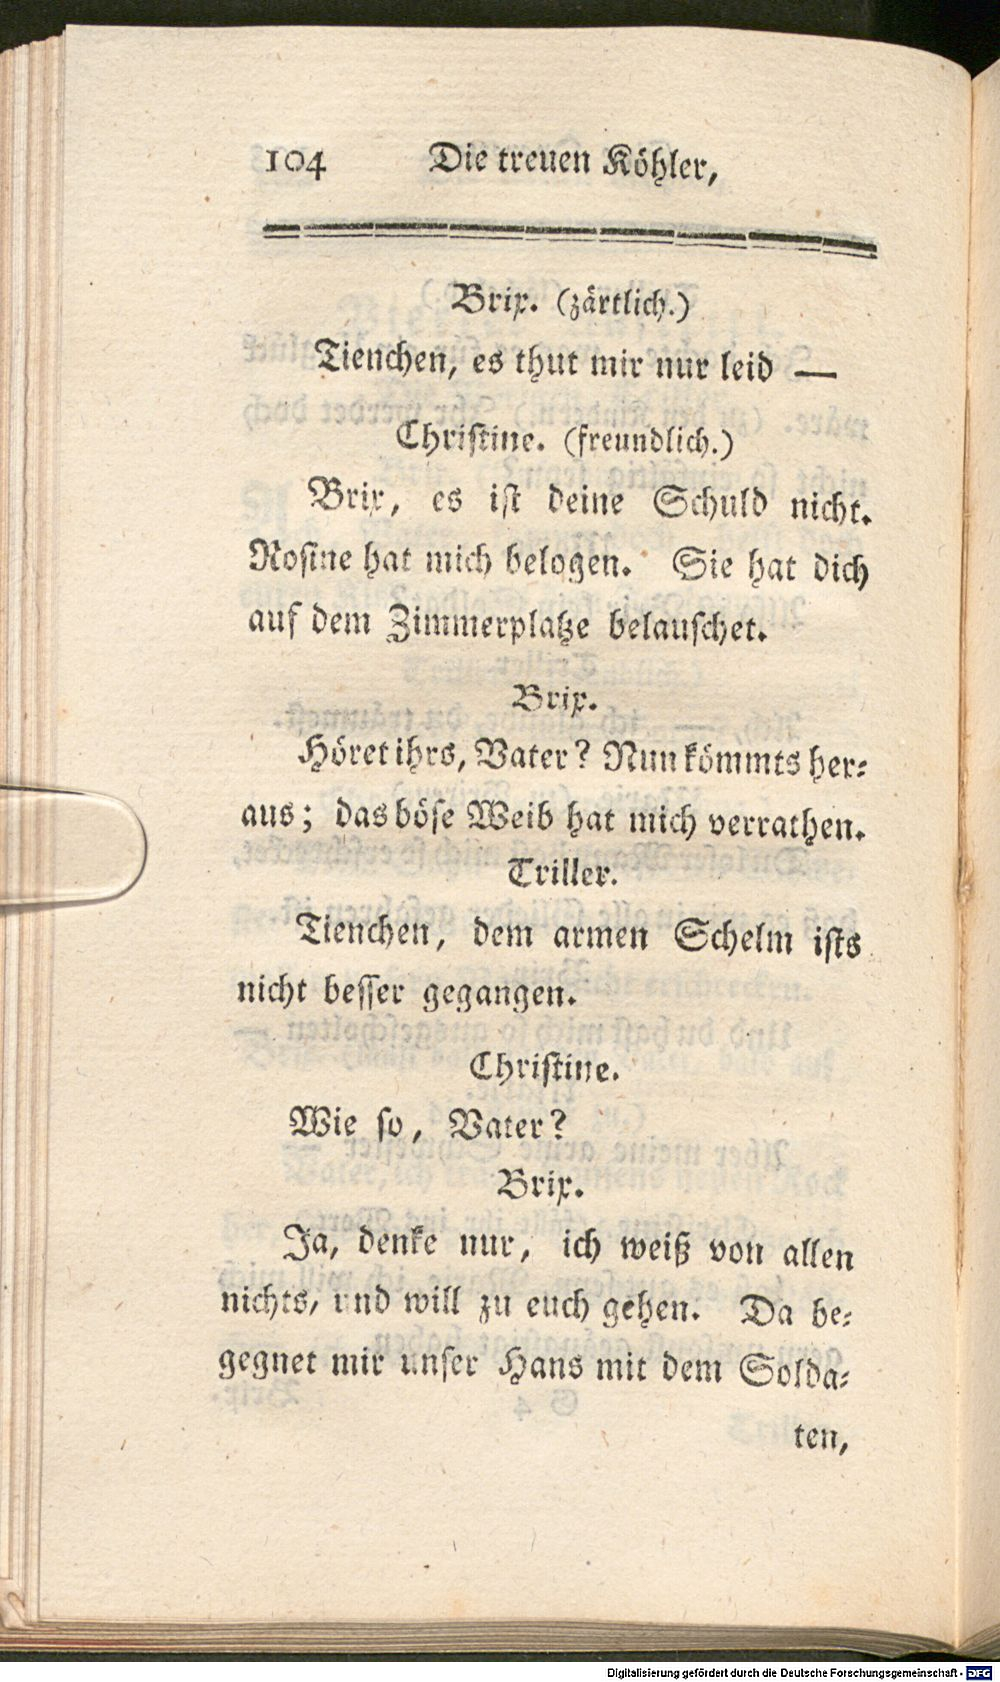 104 Die treuen Köhler,
Brix. (zärtlich.)
Tienchen, es thut mir nur leid —
Christine. (freundlich.)
Brix, es ist deine Schuld nicht.
Rosine hat mich belogen. Sie hat dich
auf dem Zimmerplatze belauschet.
Brix.
Höret ihrs, Vater? Nun kömmts her-
aus; das böse Weib hat mich verrathen.
Triller.
Tienchen, dem armen Schelm ists
nicht besser gegangen.
Christine.
Wie so, Vater?
Brix.
Ja, denke nur, ich weiß von allen
nichts, und will zu euch gehen. Da be-
gegnet mir unser Hans mit dem Solda-
ten,
Digitalisierung gefördert durch die Deutsche Forschungsgemeinschaft - DFG